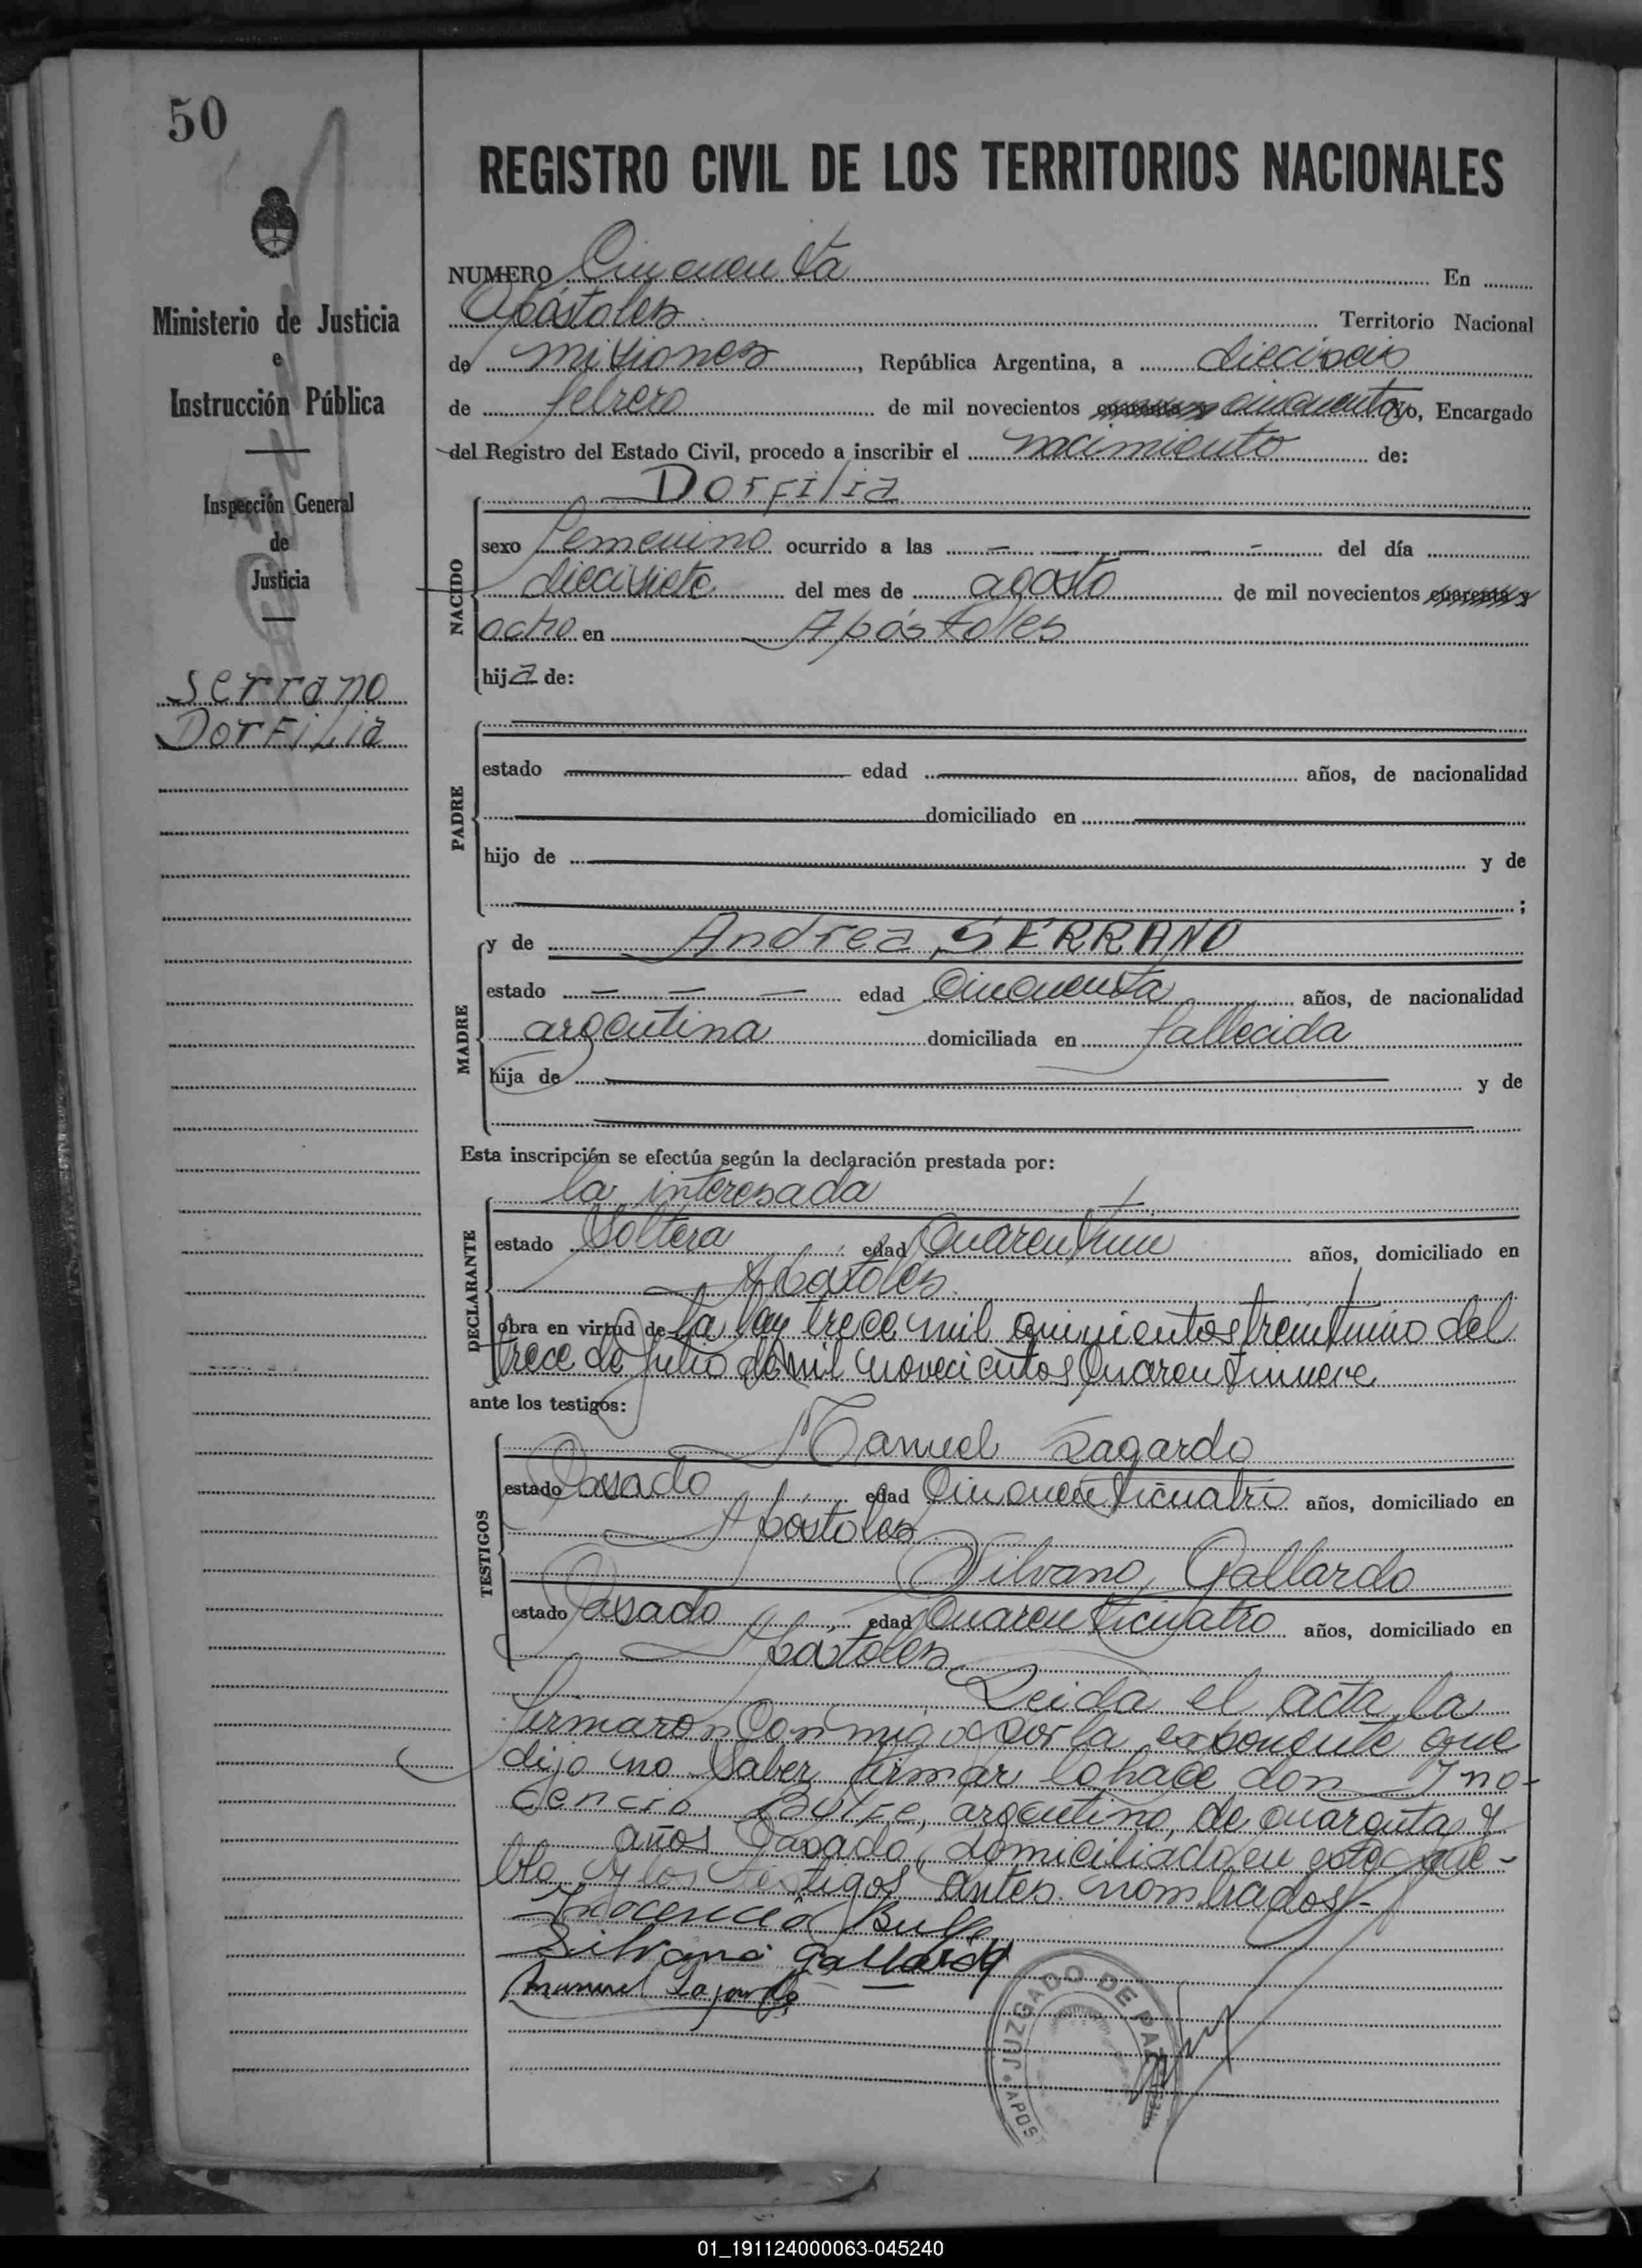 50
REGISTRO CIVIL DE LOS TERRITORIOS NACIONALES
Ministerio de Justicia
e
Instrucción Pública
Inspección General
de
Justicia
Serrano
Dorfilia
NUMERO Cincuenta En
Apóstoles Territorio Nacional
de misiones, República Argentina, a dieciseis
de febrero de mil novecientos cuarenta y cincuenta yo, Encargado
del Registro del Estado Civil, procedo a inscribir el nacimiento de:
Dorfilia
NACIDO
sexo femenino ocurrido a las - - - - del día
diecisiete del mes de agosto de mil novecientos cuarenta y
ocho en Apóstoles
hija de:
PADRE
estado edad años, de nacionalidad
domiciliado en
hijo de y de
;
MADRE
y de Andrea SERRANO
estado - - - edad Cincuenta años, de nacionalidad
argentina domiciliada en fallecida
hija de y de
Esta inscripción se efectúa según la declaración prestada por:
DECLARANTE
la interesada
estado Soltera edad Cuarentiun años, domiciliado en
Apóstoles
obra en virtud de la ley trece mil quinientos treintiuno del
trece de Julio de mil novecientos Cuarentinueve
ante los testigos:
TESTIGOS
Manuel Lagardo
estado Casado edad Cincuenticuatro años, domiciliado en
Apostoles
Silvano Gallardo
estado Casado edad Cuarenticuatro años, domiciliado en
Apóstoles
Leida el acta la
firmaron conmigo por la exponente que
dijo no saber firmar lo hace don Ino-
cencio Bulfe, argentino, de cuarenta y
años Casado, domiciliado en este pue-
blo y los testigos antes nombrados.-
Inocencio Bulfe
Silvano Gallardo
Manuel Lagardo
JUZGADO DE PAZ
APOST
01_191124000063-045240